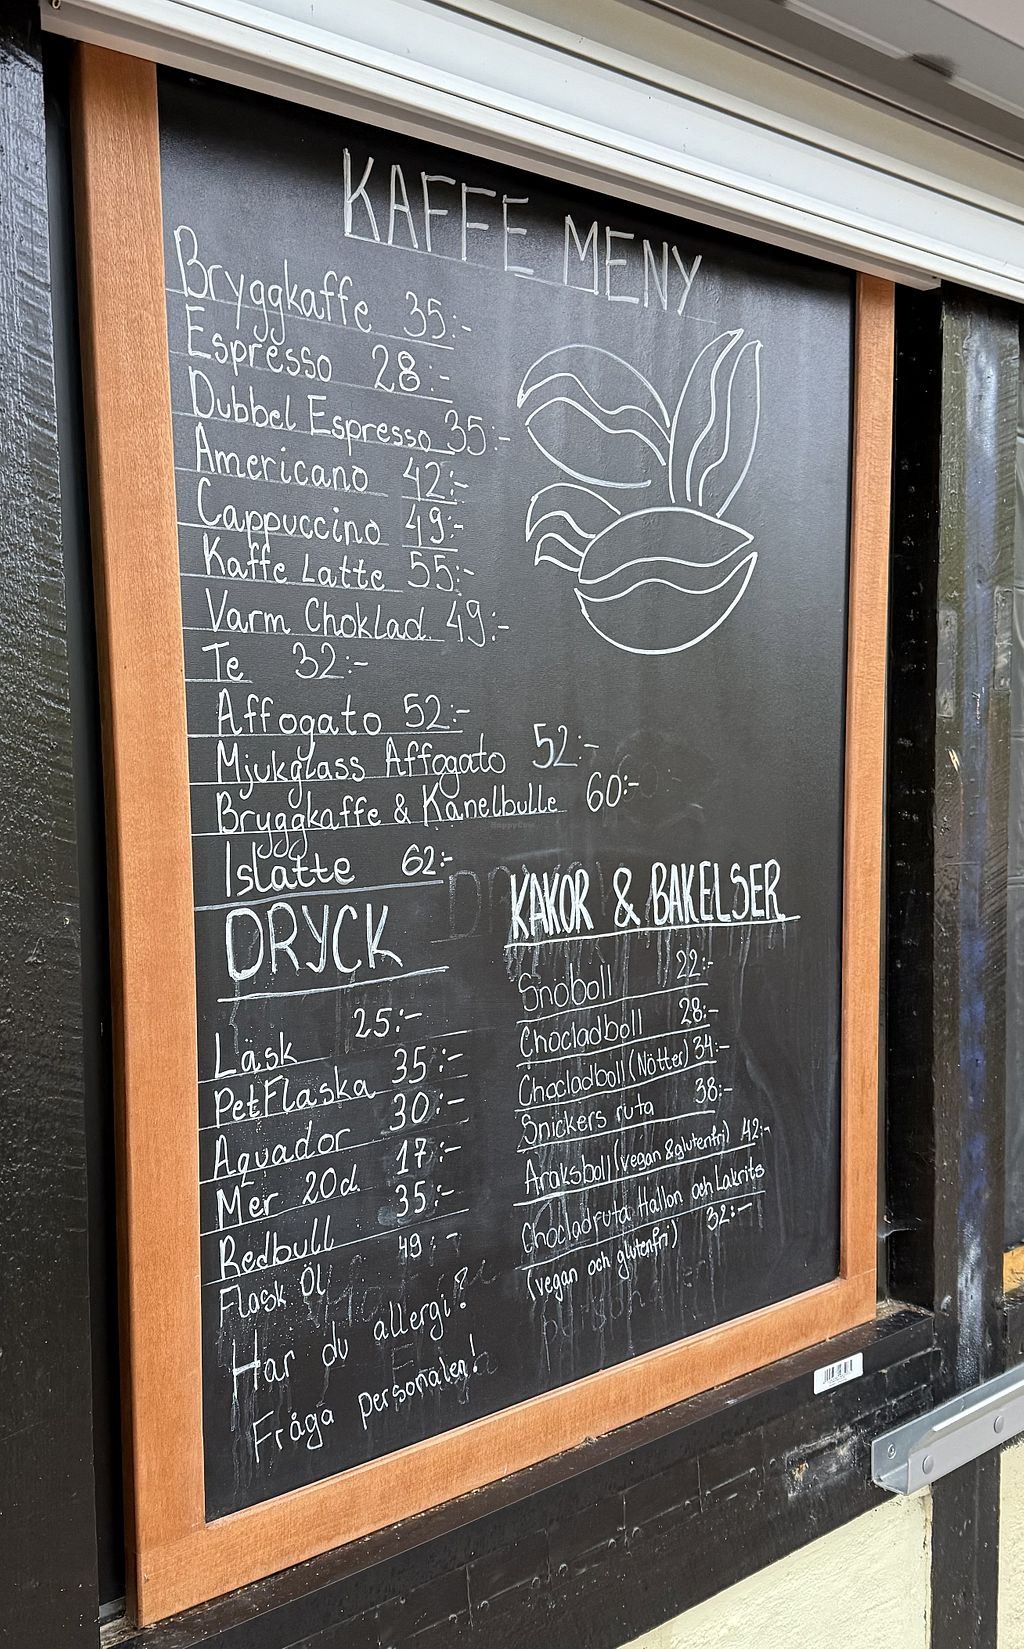 KAFFE MENY
Bryggkaffe 35:-
Espresso 28:-
Dubbel Espresso 35:-
Americano 42:-
Cappuccino 49:-
Kaffe Latte 55:-
Varm Choklad 49:-
Te 32:-
Affogato 52:-
Mjukglass Affogato 52:-
Bryggkaffe & Kanelbulle 60:-
Islatte 62:-
DRYCK
Läsk 25:-
PetFlaska 35:-
Aquador 30:-
Mer 20cl 17:-
Redbull 35:-
Flask Öl 49:-
Har du allergi?
Fråga personalen!
KAKOR & BAKELSER
Snöboll 22:-
Chocladboll 28:-
Chocladboll (Nötter) 34:-
Snickers ruta 38:-
Araksboll (vegan & glutenfri) 42:-
Chocladruta Hallon och Lakrits
(vegan och glutenfri) 32:-